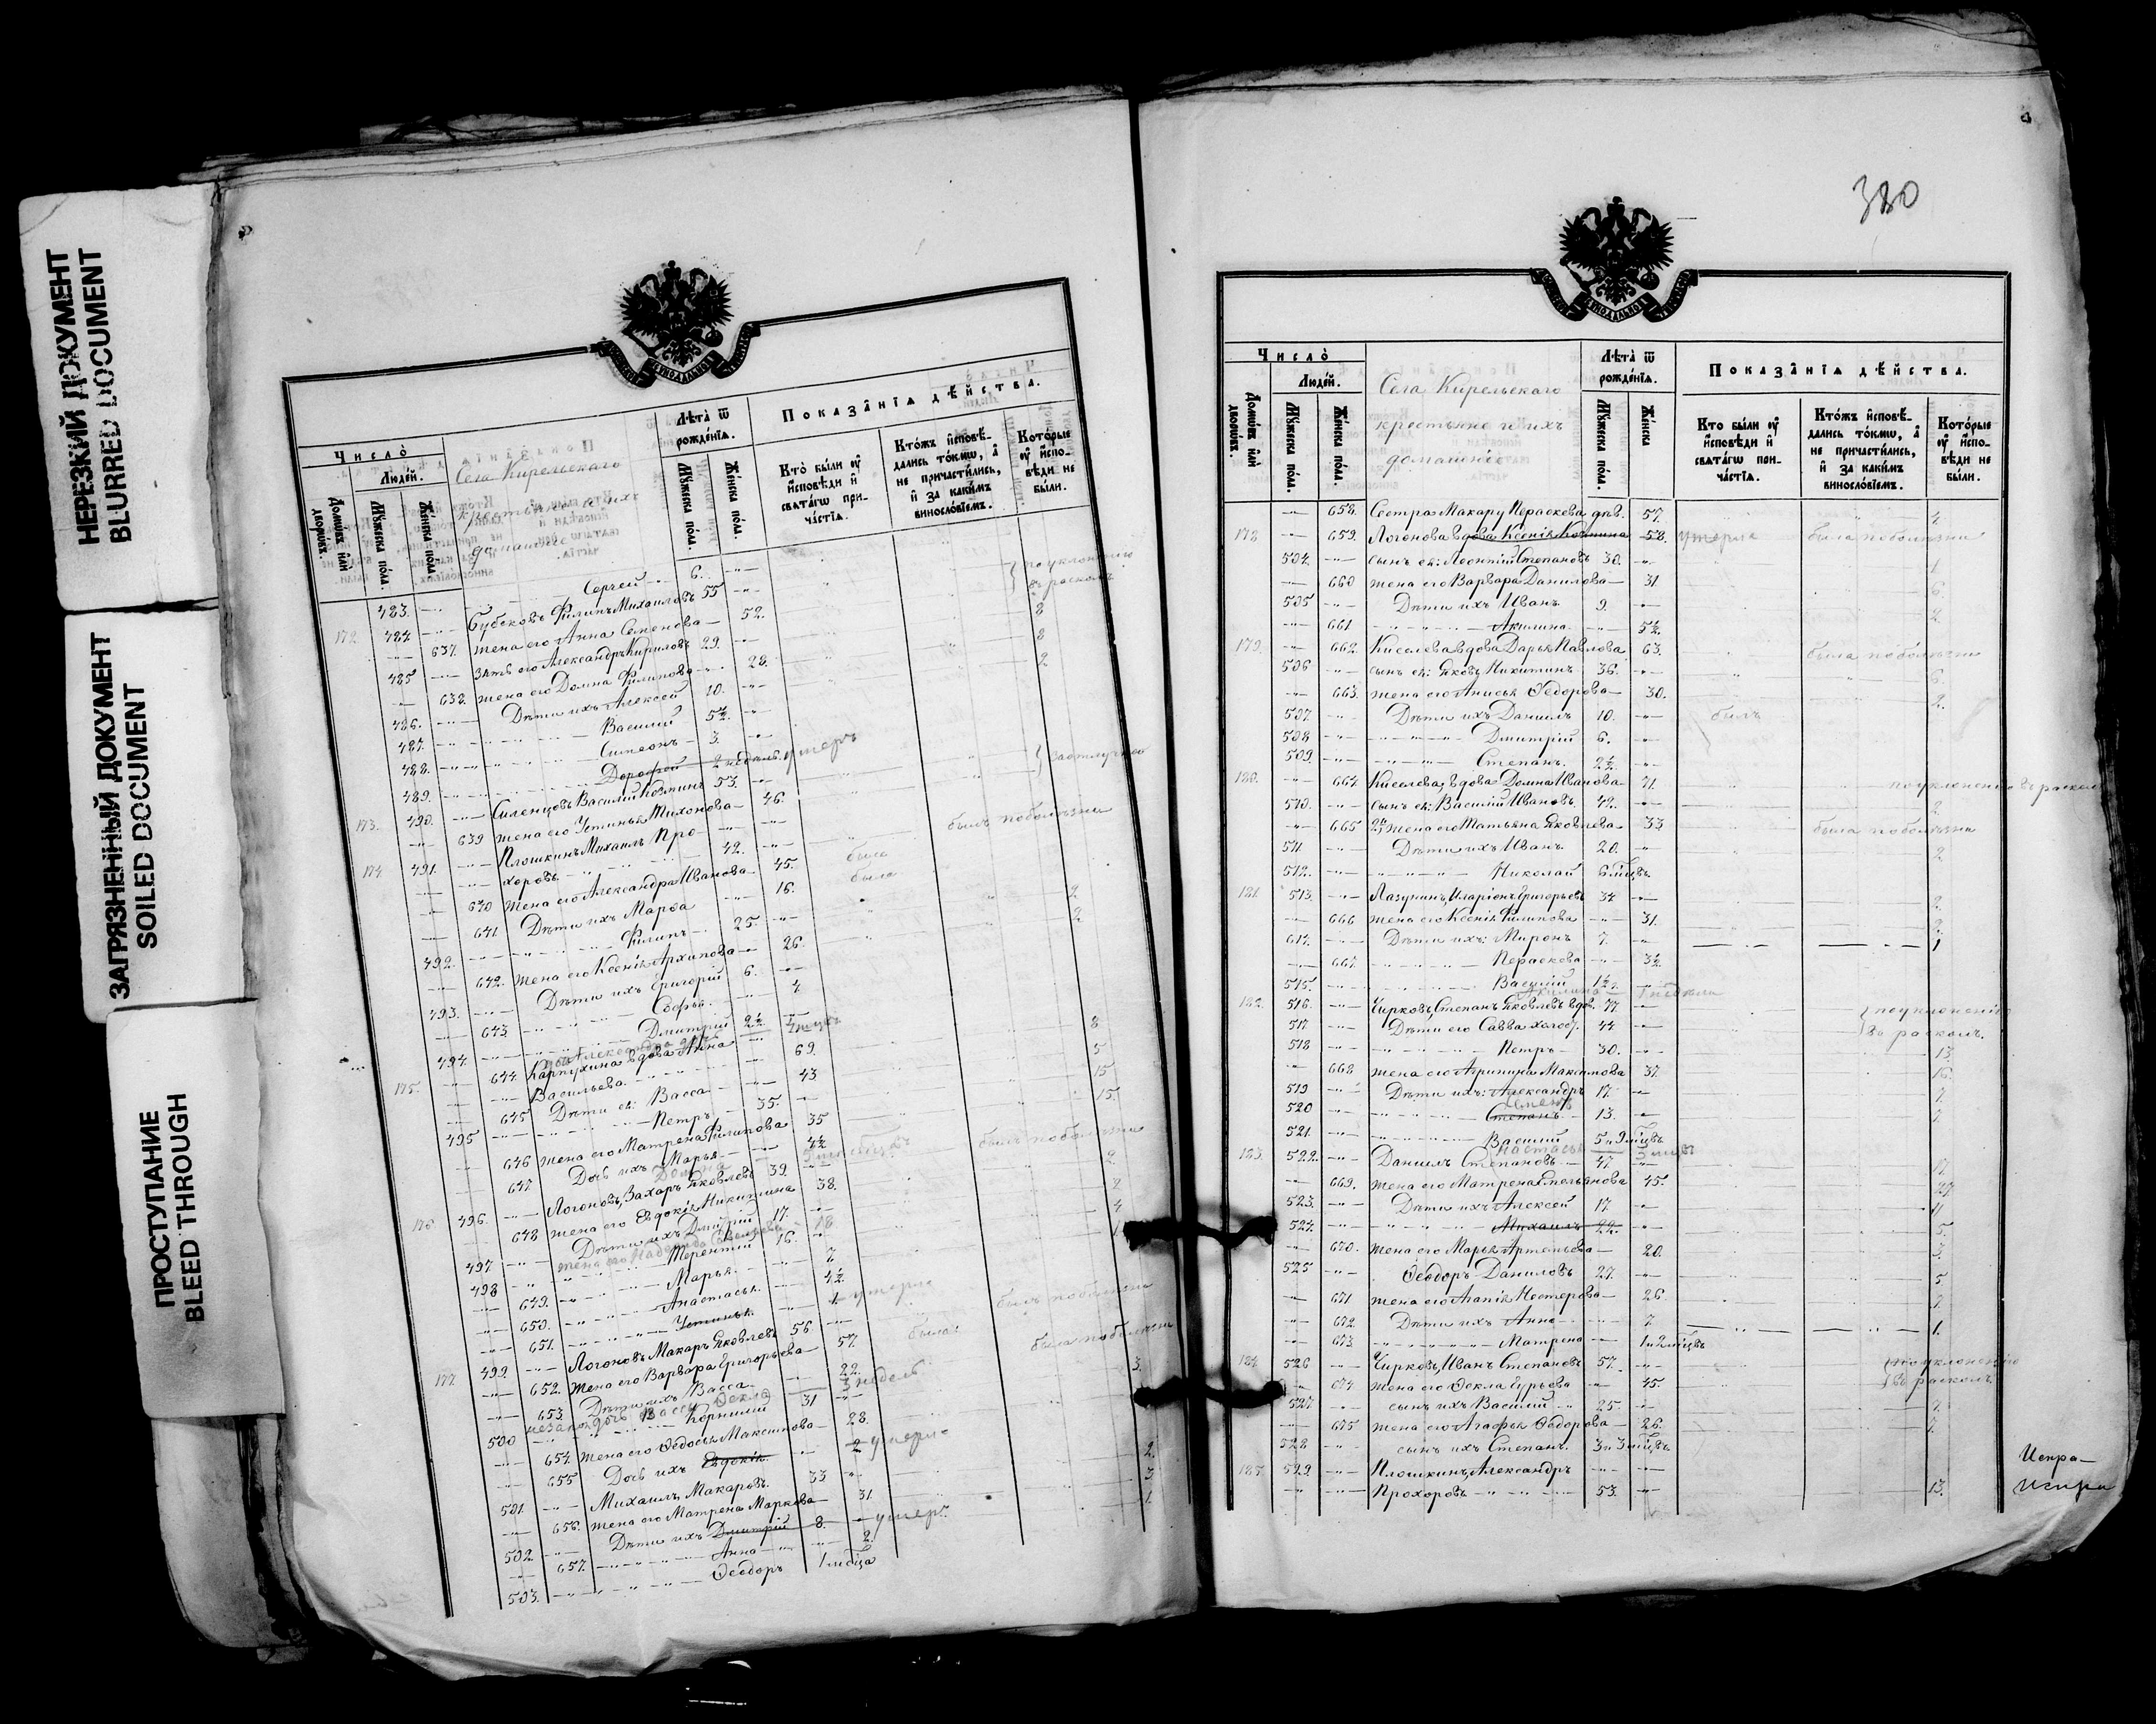 НЕРЕЗКИЙ ДОКУМЕНТ
BLURRED DOCUMENT
ЗАГРЯЗНЕННЫЙ ДОКУМЕНТ
SOILED DOCUMENT
ПРОСТУПАНИЕ
BLEED THROUGH
Число̀
Людéй.
Домѡвъ илѝ дворѡвъ.
Мꙋжеска пола.
Женска пола.
Села Кирельскаго
крестьяне и ихъ
домашніе
Лѣта̀ ѿ рождéнїѧ.
Мꙋжеска пола.
Женска пола.
Показа̂нїѧ дѣ́йства.
Кто̀ бы́ли ᲂу҆ и҆сповѣди и҆ свѧта́гѡ прича́стїѧ.
Кто́жъ и҆сповѣ́дались то́кмѡ, а҆ не причасти́лись, и҆ за каки́мъ винослóвїемъ.
Кото́рые ᲂу҆ и҆сповѣди не бы́ли.
483. Сергей 6. по уклонению
172. 484. Бубековъ Филипъ Михаиловъ 55 въ расколъ
637. жена его Анна Семенова 52. 8
485 Зять его Александръ Кириловъ 29. 8
638. жена его Домна Филипова 28. 2
486. Дѣти ихъ Алексей 10.
487. Василий 5½.
488. Симеонъ 3.
489. Дорофей 2 недѣль. умеръ
173. 490. Силенцовъ Василий Козминъ 53. } за отлучкой
639 жена его Устинья Тихонова 46.
174 491. Плошкинъ Михаилъ Про- былъ по болѣзни
хоровъ 42.
640 жена его Александра Иванова 45. была
641 Дѣти ихъ Марѳа 16. была
492. Филипъ 25. 2
642. жена его Ксенія Архипова 26. 2
493. Дѣти ихъ Григорій 6.
643 Софья 4
494. Дмитрий 2½
175. 644. Карпухина вдова Анна
Васильева. 69. 8
645 Дѣти ея: Васса 43 5
495 Петръ 35. 15
646 жена его Матрена Филипова 35 15.
647 Дочь ихъ Марья 4½
176 496. Логоновъ, Захаръ Яковлевъ 39. былъ по болѣзни
648 жена его Евдокія Никитина 38. 2
497 Дѣти ихъ Дмитрій 17. 2
498 Терентий 16. 4
649. Марья 7 1
650. Анастасья 4½
651. Устинья 1. умерла
177 499. Логоновъ Макаръ Яковлевъ 56 былъ по болѣзни
652. жена его Варвара Григорьева 57. была
653. Дѣти ихъ Васса 22. была по болѣзни
3 недель
500 Корнилий 31 3
654. жена его Ѳедосья Максимова 28.
655 Дочь ихъ Евдокія 2 умерла
501 Михаилъ Макаровъ. 33 2
656. жена его Матрена Маркова 31. 3
502 Дѣти ихъ Дмитрій 8. умеръ 1
657. Анна 2.
503. Ѳеодоръ 1 мѣсяца
380
Число̀
Людéй.
Домѡвъ илѝ дворѡвъ.
Мꙋжеска пола.
Женска пола.
Села Кирельскаго
крестьяне и ихъ
домашніе
Лѣта̀ ѿ рождéнїѧ.
Мꙋжеска пола.
Женска
Показа̂нїѧ дѣ́йства.
Кто бы́ли ᲂу҆ и҆сповѣди и҆ свѧта́гѡ прича́стїѧ.
Кто́жъ и҆сповѣ́дались то́кмѡ, а҆ не причасти́лись, и҆ за каки́мъ винослóвїемъ.
Кото́рые ᲂу҆ и҆сповѣди не бы́ли.
658. Сестра Макару Пераскева дѣв. 57. 4
178 659. Логонова вдова Ксенія Козмина 58. умерла была по болѣзни
504. сынъ ея: Леонтій Степановъ 30. 1
660 жена его Варвара Данилова 31. 6.
505 Дѣти ихъ Иванъ 9. 2
661 Акилина 5½.
179. 662. Киселева вдова Дарья Павлова 63. была по болѣзни
506 сынъ ея: Яковъ Никитинъ 36. 6.
663. жена его Анисья Ѳедорова 30. 2.
507. Дѣти ихъ Данилъ 10. былъ
508 Дмитрій 6.
509. Степанъ. 2½.
180. 664. Киселева, вдова Домна Иванова 71. по уклонению въ расколъ
510. сынъ ея: Василий Ивановъ 42. 2
665 жена его Татьяна Яковлева 33 была по болѣзни
511 Дѣти ихъ Иванъ 20. 2
512. Николай 6 мѣсцвъ
181 513. Лазунинъ, Иларіонъ Григорьевъ 34 2
666 жена его Ксенія Филипова 31. 2
614. Дѣти ихъ: Миронъ 7. 1
667. Пераскева 3½
515. Василий 1½
Акилина 1 недѣли
182. 516. Чирковъ, Степанъ Яковлевъ вдов. 77. } по уклонению
517 Дѣти его Савва холос. 44 въ расколъ.
518 Петръ 30. 13.
668 жена его Агрипина Максимова 37. 16
519 Дѣти ихъ: Александръ 17. 7.
520 Степанъ 13. 7
521. Василий 5 и 9 мѣсцвъ
Настасья 3 мѣсцъ
183. 522. Данилъ Степановъ 47. 17
669. жена его Матрена Емельянова 45. 27
523. Дѣти ихъ Алексей 17. 11
524. Михаилъ 22. 5.
670. жена его Марья Артемьева 20. 3.
525 Ѳеодоръ Даниловъ 27. 5
671 жена его Агапія Нестерова 26. 7.
672. Дѣти ихъ Анна 7 1.
673. Матрена 1 и 2 мѣсцвъ
184. 526 Чирковъ, Иванъ Степановъ 57. } по уклонению
674 жена его Ѳекла Гурьева 45. въ расколъ
527 сынъ ихъ Василий 25 7.
675 жена его Агафья Ѳедорова 26. 7.
528 сынъ ихъ Степанъ. 3 и 3 мѣсцвъ
185 529. Плошкинъ, Александръ
Прохоровъ 53. 13.
Испра-